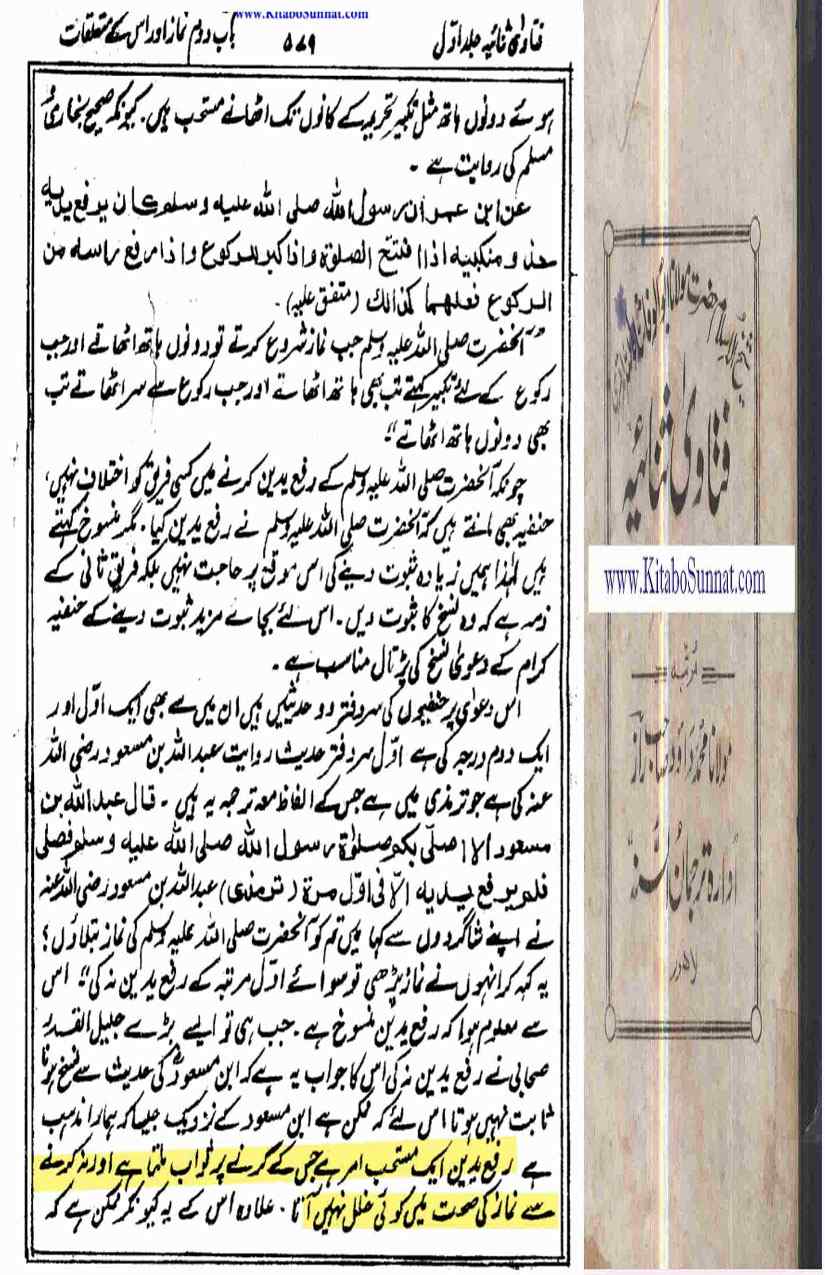 www.KitaboSunnat.com
فتاویٰ ثنائیہ جلد اوّل
۵۷۹
باب دوم نماز اور اس کے متعلقات
ہوئے دونوں ہاتھ مثل تکبیر تحریمہ کے کانوں تک اٹھانے مستحب ہیں۔ کیونکہ صحیح بخاری
مسلم کی روایت ہے۔
عن ابن عمر ان رسول الله صلی الله علیه وسلم کان یرفع یدیه
حذو منکبیه اذا افتتح الصلوٰة واذا کبر للرکوع واذا رفع راسه من
الرکوع فعلهما کذالك (متفق علیہ)۔
"آنحضرت صلی اللہ علیہ وسلم جب نماز شروع کرتے تو دونوں ہاتھ اٹھاتے اور جب
رکوع کے لئے تکبیر کہتے تب بھی ہاتھ اٹھاتے اور جب رکوع سے سر اٹھاتے تب
بھی دونوں ہاتھ اٹھاتے"
چونکہ آنحضرت صلی اللہ علیہ وسلم کے رفع یدین کرنے میں کسی فریق کو اختلاف نہیں،
حنفیہ بھی مانتے ہیں کہ آنحضرت صلی اللہ علیہ وسلم نے رفع یدین کیا۔ مگر منسوخ کہتے
ہیں لہٰذا ہمیں زیادہ ثبوت دینے کی اس موقع پر حاجت نہیں بلکہ فریق ثانی کے
ذمہ ہے کہ وہ نسخ کا ثبوت دیں۔ اس لئے بجائے مزید ثبوت دینے کے حنفیہ
کرام کے دعویٰ نسخ کی پڑتال مناسب ہے۔
اس دعویٰ پر حنفیوں کی سردفتر دو حدیثیں ہیں ان میں سے بھی ایک اوّل اور
ایک دوم درجہ کی ہے اوّل سردفتر حدیث روایت عبداللہ بن مسعود رضی اللہ
عنہ کی ہے جو ترمذی میں ہے جس کے الفاظ معہ ترجمہ یہ ہیں۔ قال عبدالله بن
مسعود الا اصلّی بکم صلوٰة رسول الله صلی الله علیه وسلم فصلی
فلم یرفع یدیه الّا فی اوّل مرة (ترمذی) عبداللہ بن مسعود رضی اللہ عنہ
نے اپنے شاگردوں سے کہا میں تم کو آنحضرت صلی اللہ علیہ وسلم کی نماز بتلاؤں؟
یہ کہہ کر انہوں نے نماز پڑھی تو سوائے اوّل مرتبہ کے رفع یدین نہ کی" اس
سے معلوم ہوا کہ رفع یدین منسوخ ہے۔ جب ہی تو ایسے بڑے جلیل القدر
صحابی نے رفع یدین نہ کی اس کا جواب یہ ہے کہ ابن مسعودؓ کی حدیث سے نسخ ہونا
ثابت نہیں ہوتا اس لئے کہ ممکن ہے ابن مسعود کے نزدیک جیسا کہ ہمارا مذہب
ہے رفع یدین ایک مستحب امر ہے جس کے کرنے پر ثواب ملتا ہے اور نہ کرنے
سے نماز کی صحت میں کوئی خلل نہیں آتا۔ علاوہ اس کے یہ کیونکر ممکن ہے کہ
شیخ الاسلام حضرت مولانا ابوالوفا ثناء اللہ
فتاویٰ ثنائیہ
www.KitaboSunnat.com
مرتبہ
مولانا محمد داؤد صاحب راز
ادارہ ترجمان السنہ
لاہور